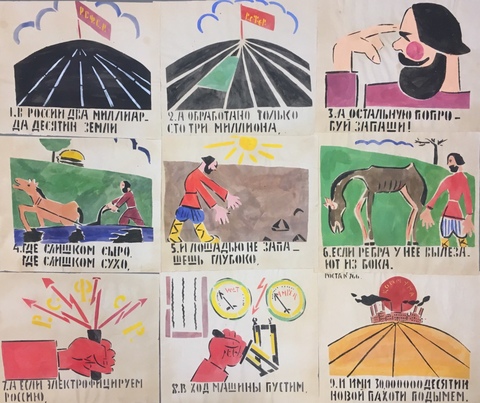 Р.С.Ф.С.Р.
1.В РОССИИ ДВА МИЛЛИАР-
ДА ДЕСЯТИН ЗЕМЛИ
Р.С.Ф.С.Р.
2.А ОБРАБОТАНО ТОЛЬКО
СТО ТРИ МИЛЛИОНА.
3.А ОСТАЛЬНУЮ ПОПРО-
БУЙ ЗАПАШИ!
4.ГДЕ СЛИШКОМ СЫРО,
ГДЕ СЛИШКОМ СУХО,
5.И ЛОШАДЬЮ НЕ ЗАПА-
ШЕШЬ ГЛУБОКО,
6.ЕСЛИ РЕБРА У НЕЕ ВЫЛЕЗА-
ЮТ ИЗ БОКА.
РОСТА
Р С Ф С Р
7.А ЕСЛИ ЭЛЕКТРОФИЦИРУЕМ
РОССИЮ,
8.В ХОД МАШИНЫ ПУСТИМ,
9.И МИ 30,000000 ДЕСЯТИН
НОВОЙ ПАХОТИ ПОДЫМЕМ.